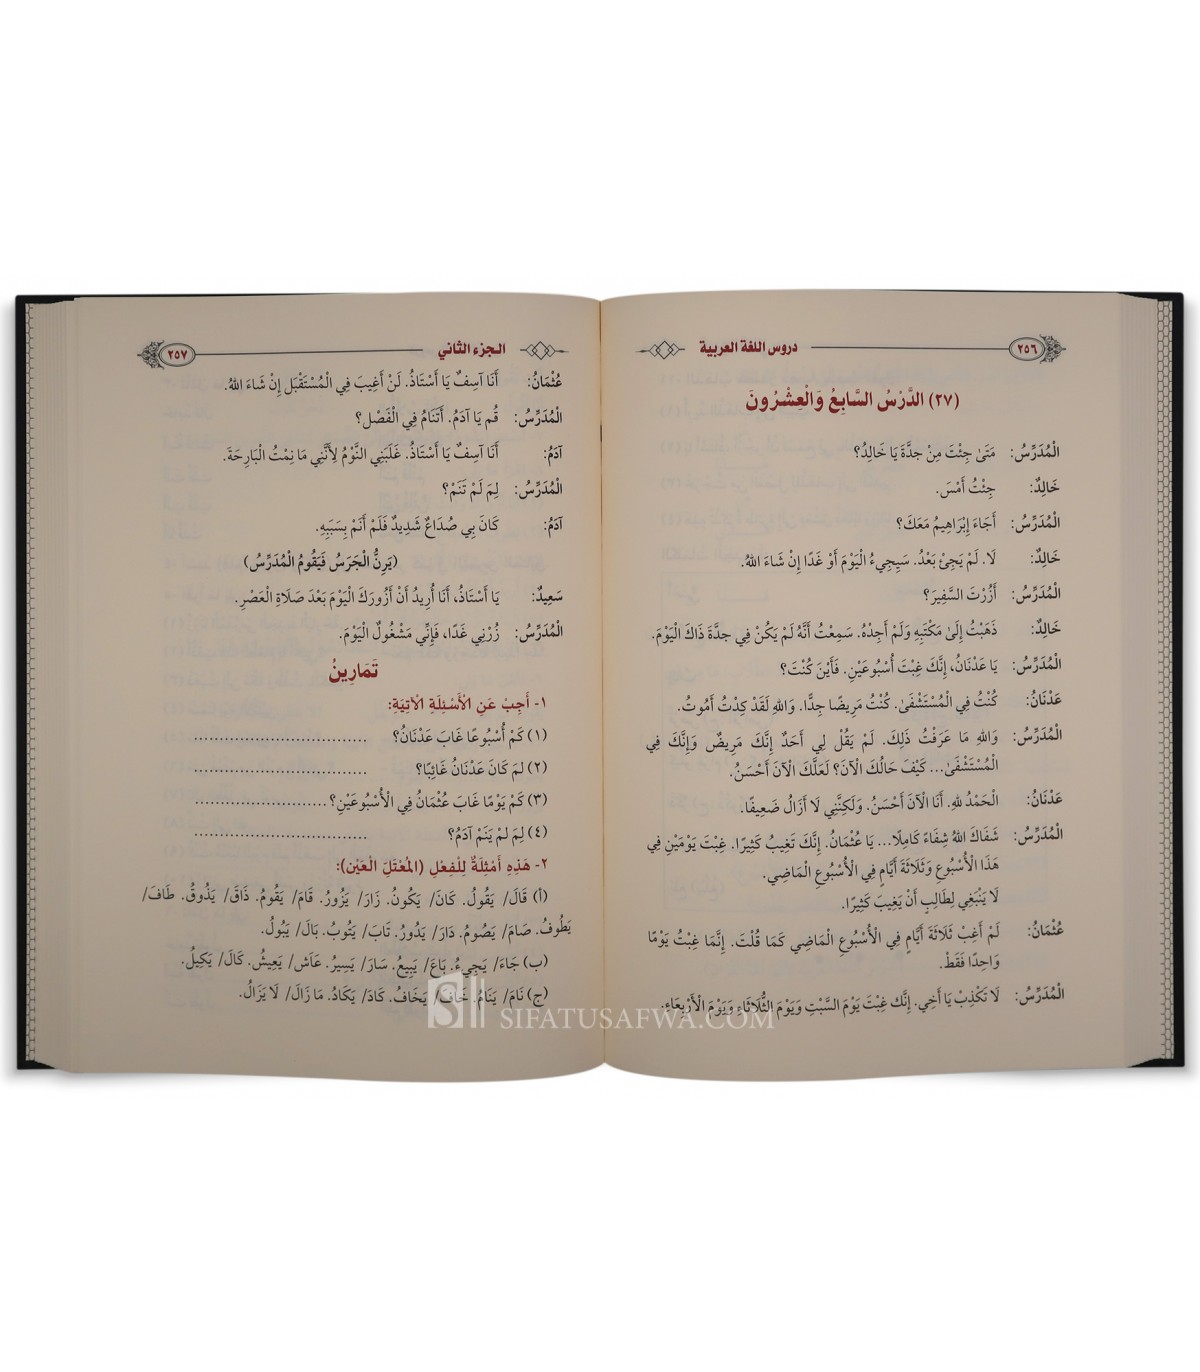 ٢٥٦ دروس اللغة العربية
(٢٧) الدَّرْسُ السَّابِعُ وَالْعِشْرُونَ
الْمُدَرِّسُ: مَتَىٰ جِئْتَ مِنْ جدَّةَ يَا خَالِدُ؟
خَالِدٌ: جِئْتُ أَمْسَ.
الْمُدَرِّسُ: أَجَاءَ إِبْرَاهِيمُ مَعَكَ؟
خَالِدٌ: لَا. لَمْ يَجِئْ بَعْدُ. سَيَجِيءُ الْيَوْمَ أَوْ غَدًا إِنْ شَاءَ اللهُ.
الْمُدَرِّسُ: أَزُرْتَ السَّفِيرَ؟
خَالِدٌ: ذَهَبْتُ إِلَىٰ مَكْتَبِهِ وَلَمْ أَجِدْهُ. سَمِعْتُ أَنَّهُ لَمْ يَكُنْ فِي جدَّةَ ذَاكَ الْيَوْمَ.
الْمُدَرِّسُ: يَا عَدْنَانُ، إِنَّكَ غِبْتَ أُسْبُوعَيْنِ. فَأَيْنَ كُنْتَ؟
عَدْنَانُ: كُنْتُ فِي الْمُسْتَشْفَىٰ. كُنْتُ مَرِيضًا جِدًّا. وَاللهِ لَقَدْ كِدْتُ أَمُوتُ.
الْمُدَرِّسُ: وَاللهِ مَا عَرَفْتُ ذَلِكَ. لَمْ يَقُلْ لِي أَحَدٌ إِنَّكَ مَرِيضٌ وَإِنَّكَ فِي
الْمُسْتَشْفَىٰ... كَيْفَ حَالُكَ الْآنَ؟ لَعَلَّكَ الْآنَ أَحْسَنُ.
عَدْنَانُ: الْحَمْدُ لِلهِ. أَنَا الْآنَ أَحْسَنُ. وَلَكِنَّنِي لَا أَزَالُ ضَعِيفًا.
الْمُدَرِّسُ: شَفَاكَ اللهُ شِفَاءً كَامِلًا... يَا عُثْمَانُ. إِنَّكَ تَغِيبُ كَثِيرًا. غِبْتَ يَوْمَيْنِ فِي
هَذَا الْأُسْبُوعِ وَثَلَاثَةَ أَيَّامٍ فِي الْأُسْبُوعِ الْمَاضِي.
لَا يَنْبَغِي لِطَالِبٍ أَنْ يَغِيبَ كَثِيرًا.
عُثْمَانُ: لَمْ أَغِبْ ثَلَاثَةَ أَيَّامٍ فِي الْأُسْبُوعِ الْمَاضِي كَمَا قُلْتَ. إِنَّمَا غِبْتُ يَوْمًا
وَاحِدًا فَقَطْ.
الْمُدَرِّسُ: لَا تَكْذِبْ يَا أَخِي. إِنَّكَ غِبْتَ يَوْمَ السَّبْتِ وَيَوْمَ الثُّلَاثَاءِ وَيَوْمَ الْأَرْبِعَاءِ.
الجزء الثاني ٢٥٧
عُثْمَانُ: أَنَا آسِفٌ يَا أَسْتَاذُ. لَنْ أَغِيبَ فِي الْمُسْتَقْبَلِ إِنْ شَاءَ اللهُ.
الْمُدَرِّسُ: قُم يَا آدَمُ. أَتَنَامُ فِي الْفَصْلِ؟
آدَمُ: أَنَا آسِفٌ يَا أَسْتَاذُ. غَلَبَنِي النَّوْمُ لِأَنَّنِي مَا نِمْتُ الْبَارِحَةَ.
الْمُدَرِّسُ: لِمَ لَمْ تَنَمْ؟
آدَمُ: كَانَ بِي صُدَاعٌ شَدِيدٌ فَلَمْ أَنَمْ بِسَبَبِهِ.
(يَرِنُّ الْجَرَسُ فَيَقُومُ الْمُدَرِّسُ)
سَعِيدٌ: يَا أَسْتَاذُ، أَنَا أُرِيدُ أَنْ أَزُورَكَ الْيَوْمَ بَعْدَ صَلَاةِ الْعَصْرِ.
الْمُدَرِّسُ: زُرْنِي غَدًا، فَإِنِّي مَشْغُولٌ الْيَوْمَ.
تَمَارِينْ
١- أَجِبْ عَنِ الْأَسْئِلَةِ الْآتِيَةِ:
(١) كَمْ أُسْبُوعًا غَابَ عَدْنَانُ؟ .................................
(٢) لِمَ كَانَ عَدْنَانُ غَائِبًا؟ .................................
(٣) كَمْ يَوْمًا غَابَ عُثْمَانُ فِي الْأُسْبُوعَيْنِ؟ .........................
(٤) لِمَ لَمْ يَنَمْ آدَمُ؟ .................................
٢- هَذِهِ أَمْثِلَةٌ لِلْفِعْلِ (المُعْتَلِّ الْعَيْنِ):
(أ) قَالَ/ يَقُولُ. كَانَ/ يَكُونُ. زَارَ/ يَزُورُ. قَامَ/ يَقُومُ. ذَاقَ/ يَذُوقُ. طَافَ/
يَطُوفُ. صَامَ/ يَصُومُ. دَارَ/ يَدُورُ. تَابَ/ يَتُوبُ. بَالَ/ يَبُولُ.
(ب) جَاءَ/ يَجِيءُ. بَاعَ/ يَبِيعُ. سَارَ/ يَسِيرُ. عَاشَ/ يَعِيشُ. كَالَ/ يَكِيلُ.
(ج) نَامَ/ يَنَامُ. خَافَ/ يَخَافُ. كَادَ/ يَكَادُ. مَا زَالَ/ لَا يَزَالُ.
SIFATUSAFWA.COM